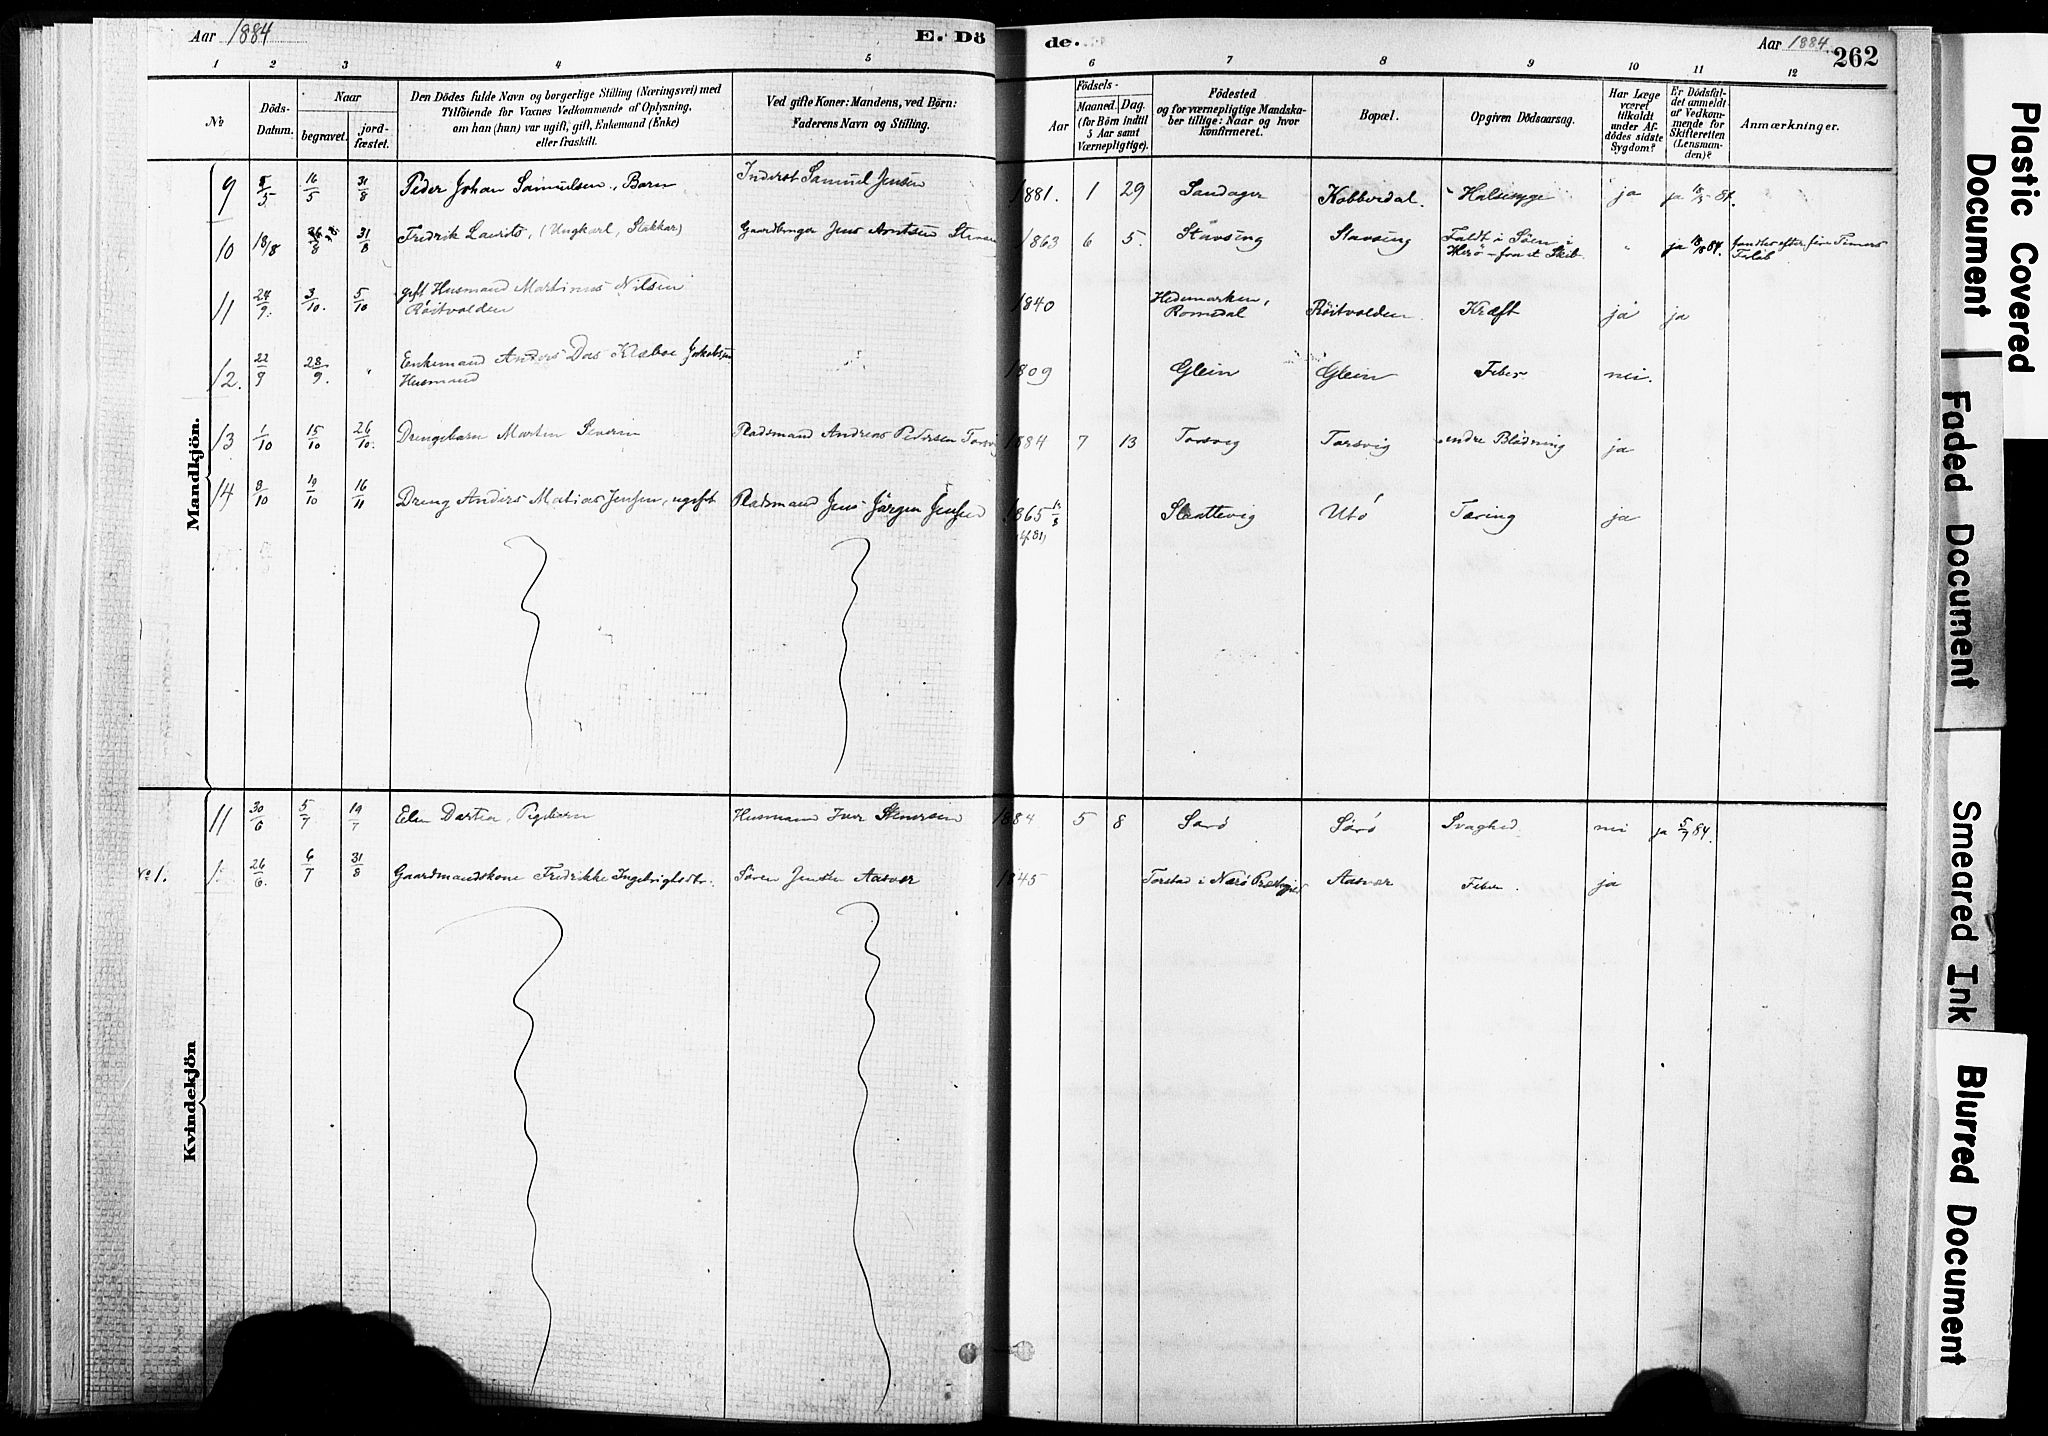 Aar 1884
E. Dö
de.
Aar 1884
262
1 2 3 4 5 6 7 8 9 10 11 12
№
Döds-
Datum.
Naar
begravet.
jord-
fæstet.
Den Dödes fulde Navn og borgerlige Stilling (Næringsvei) med
Tilföiende for Voxnes Vedkommende af Oplysning,
om han (hun) var ugift, gift, Enkemand (Enke)
eller fraskilt.
Ved gifte Koner: Mandens, ved Börn:
Faderens Navn og Stilling.
Födsels-
Aar
Maaned.
Dag.
(for Börn indtil
5 Aar samt
Værnepligtige).
Födested
og for værnepligtige Mandska-
ber tillige: Naar og hvor
Konfirmeret.
Bopæl.
Opgiven Dödsaarsag.
Har Læge
været
tilkaldt
under Af-
dödes sidste
Sygdom?
Er Dödsfal-
det anmeldt
af Vedkom-
mende for
Skifteretten
(Lensman-
den)?
Anmærkninger.
Mandkjön.
9 5/5 16/5 31/8 Peder Johan Samulsen, Barn Inderst Samuel Jensen 1881. 1 29 Sandager Kobberdal. Halssyge ja ja 18/5 84.
10 18/8 26/8 31/8 Fredrik Laurits, (Ungkarl, Stakkar) Gaardbruger Jens Arntsen 1863 6 5. Stavsing Stavsing Faldt i Söen i ja 18/8 84. efter fire Timers
Herö - fra et Skib Forløb
11 24/9. 3/10. 5/10 gift Husmand Martinus Nilsen 1840 Hedemarken, Röitvolden Kræft ja ja
Röitvolden Romedal
12. 22/9 28/9. " Enkemand Anders Das Klæboe Jakobsen 1809 Glein Glein Feber nei.
Husmand
13 1/10 15/10 26/10. Drengebarn Martin Severin Pladsmand Andreas Pedersen Torsvig 1884 7 13 Torsvig Torsvig indre Blödning ja
14 8/10 19/10 16/11 Dreng Anders Matias Jensen, ugift Pladsmand Jens Jörgen Jensen 1865 Slaattevig Utö Tæring ja
Kvindekjön
11 30/6 5/7 19/7 Elen Dortea, Pigebarn Husmand Iver Stenersen 1884 5 8 Sörö Sörö Svaghed nei ja 5/7 84.
No 1. 26/6. 6/7 31/8 Gaardmandskone Fredrikke Ingebrigtsdtr. Sören Jensen Aasvær 1845 Torstad i Nærö Præstegjeld Aasvær Feber. ja
Plastic Covered
Document
Faded Document
Smeared Ink
Blurred Document